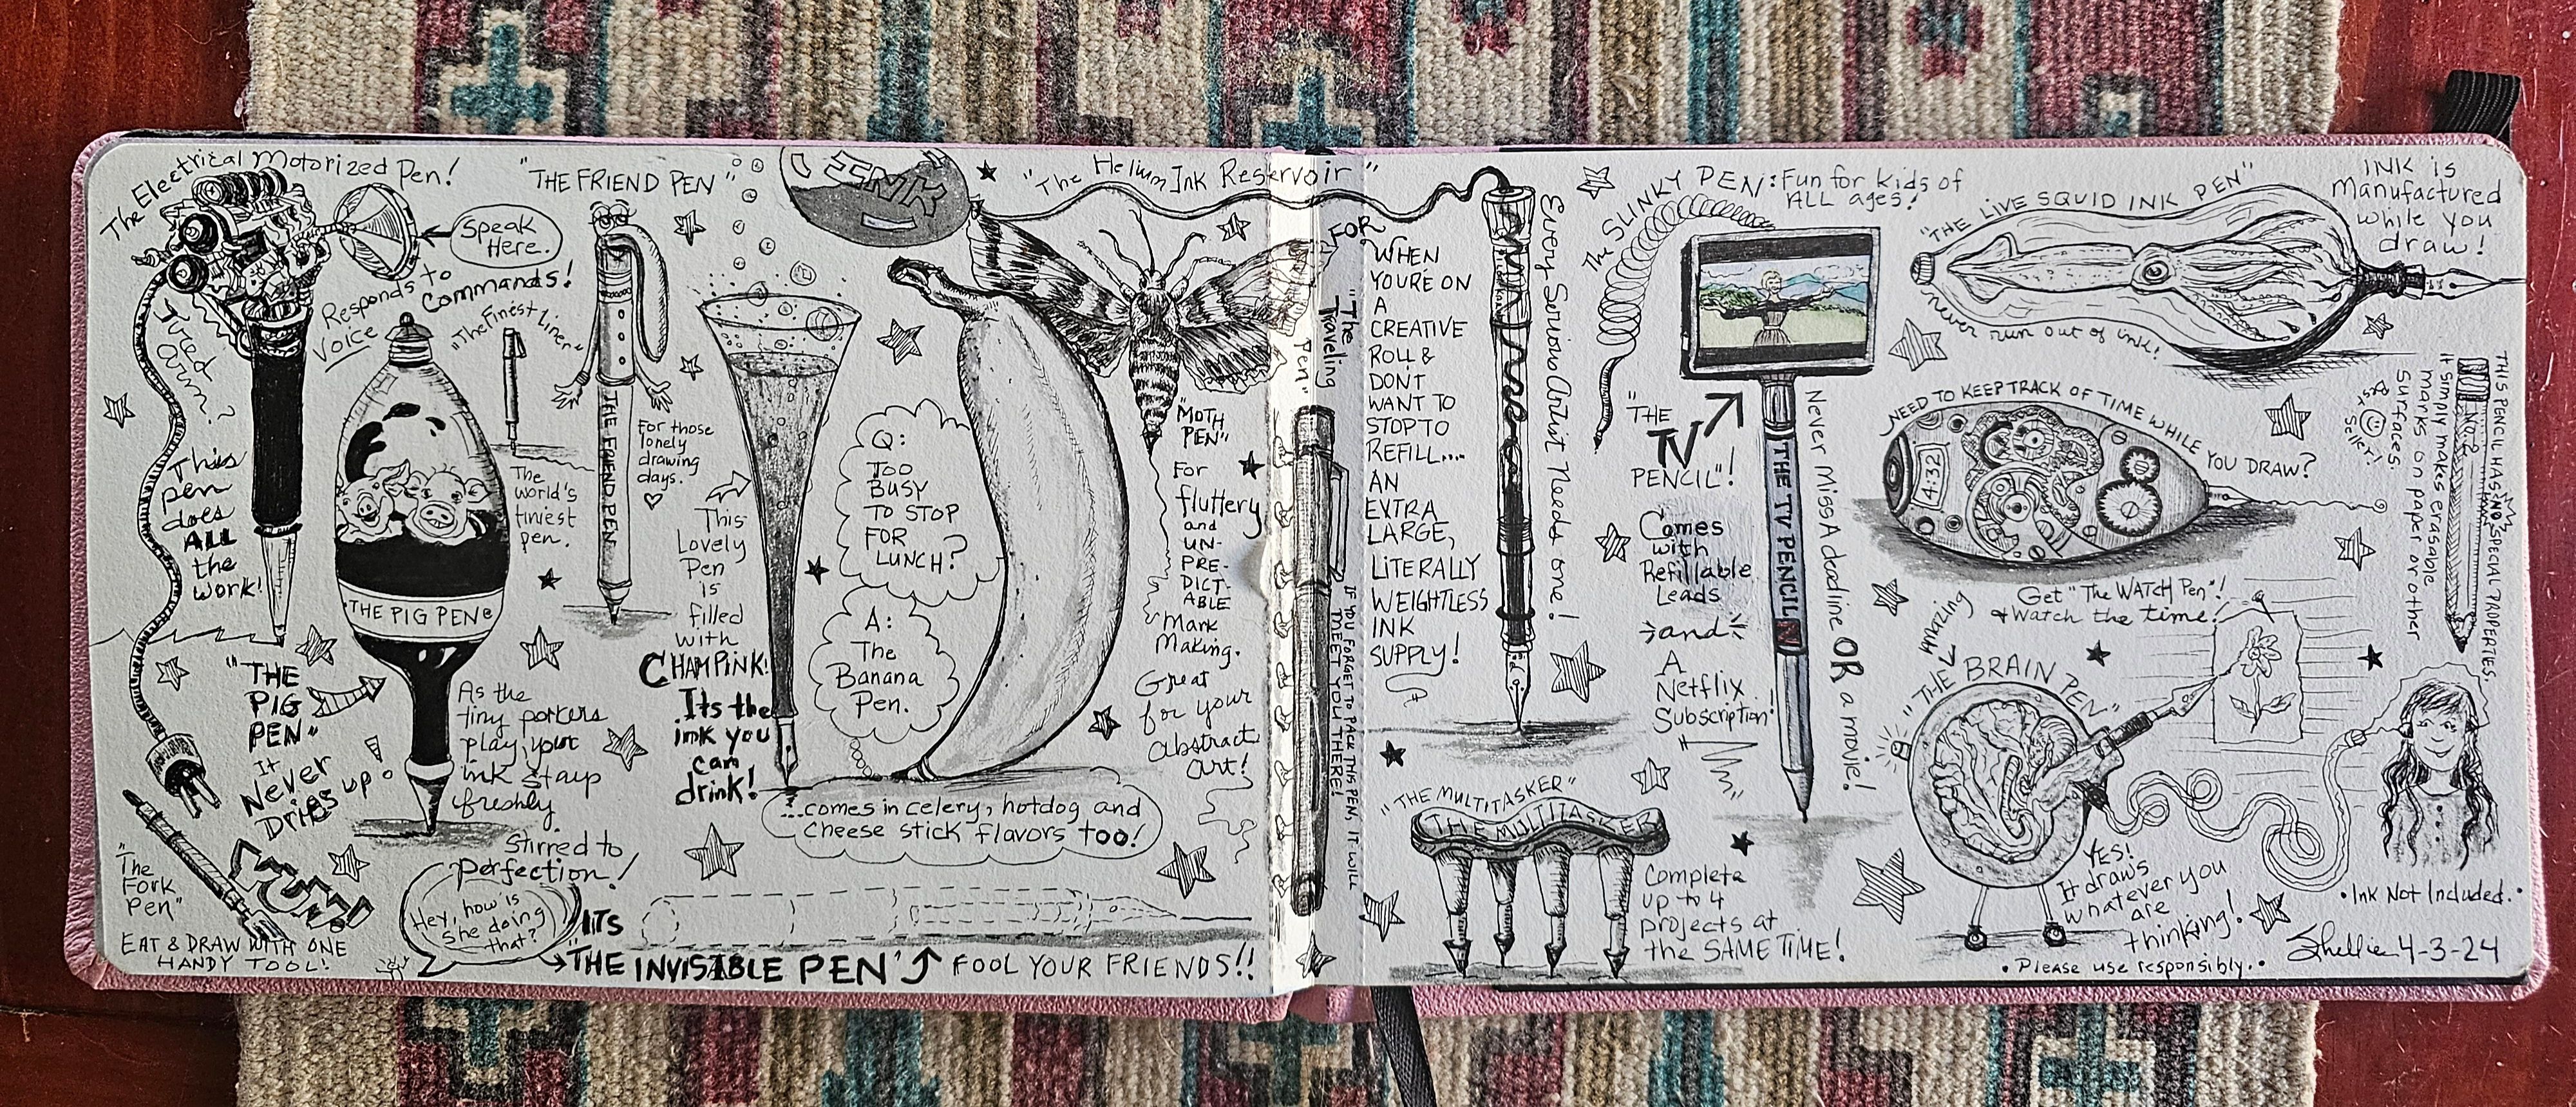 The Electrical Motorized Pen!
Speak
Here.
Responds to
Voice Commands!
Tired
Arm?
This
pen
does
ALL
the
work!
"THE
PIG
PEN"
It
Never
Dries up!
THE PIG PEN
As the
tiny porkers
play, your
ink stays
freshly
stirred to
perfection!
"The Finest Liner"
The
world's
tiniest
pen.
"THE FRIEND PEN"
THE FRIEND PEN
For those
lonely
drawing
days.
"The
Fork
Pen"
YUM!
EAT & DRAW WITH ONE
HANDY TOOL!
Hey, how is
she doing
that?
ITS
"THE INVISIBLE PEN" FOOL YOUR FRIENDS!!
This
Lovely
Pen
is
filled
with
CHAMPINK!
Its the
ink you
can
drink!
Q:
TOO
BUSY
TO STOP
FOR
LUNCH?
A:
The
Banana
Pen.
...comes in celery, hotdog and
cheese stick flavors too!
"MOTH
PEN"
For
fluttery
and
UN-
PRE-
DICT-
ABLE
Mark
Making.
Great
for your
abstract
art!
INK
"The Helium Ink Reservoir"
FOR
WHEN
YOU'RE ON
A
CREATIVE
ROLL &
DON'T
WANT TO
STOP TO
REFILL....
AN
EXTRA
LARGE,
LITERALLY
WEIGHTLESS
INK
SUPPLY!
Every Serious Artist Needs one!
"The
Traveling
Pen"
IF YOU FORGET TO PACK THIS PEN, IT WILL
MEET YOU THERE!
The SLINKY PEN: Fun for kids of
ALL ages!
"THE
TV
PENCIL"!
THE TV PENCIL
Never Miss A deadline OR a movie!
Comes
with
Refillable
Leads
and
A
Netflix
Subscription!
"THE MULTITASKER"
THE MULTITASKER
Complete
up to 4
projects at
the SAME TIME!
"THE LIVE SQUID INK PEN"
never run out of ink!
INK is
manufactured
while you
draw!
NEED TO KEEP TRACK OF TIME WHILE YOU DRAW?
4:32
Get "The WATCH Pen"!
& Watch the time!
THIS PENCIL HAS "NO" SPECIAL PROPERATES.
It simply makes erasable
marks on paper or other
surfaces.
Best
Seller!
No. 2
amazing
"THE BRAIN PEN"
YES!
It draws
whatever you
are
thinking!
• Ink Not Included. •
• Please use responsibly. •
Shellie 4-3-24